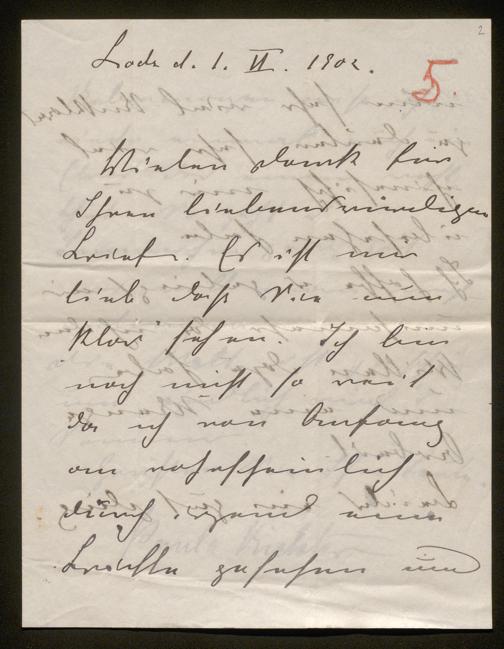 2
5.
Lodz d. 1. VI. 1902.
Vielen Dank für
Ihren liebenswürdigen
Brief. Es ist mir
lieb daß Sie nun
"klar" sehen. Ich bin
noch nicht so weit
da ich von Anfang
an wahrscheinlich
durch irgend eine
Brille gesehen und